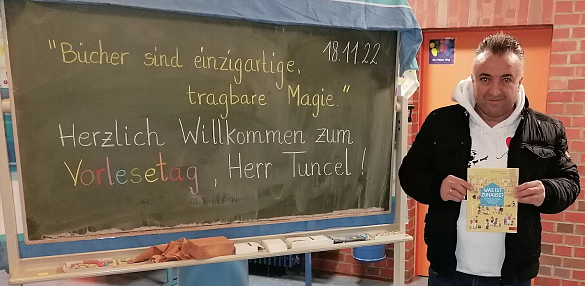 "Bücher sind einzigartige,
tragbare Magie."
18.11.22
Herzlich Willkommen zum
Vorlesetag, Herr Tuncel!
WAS IST
ZUHAUSE?